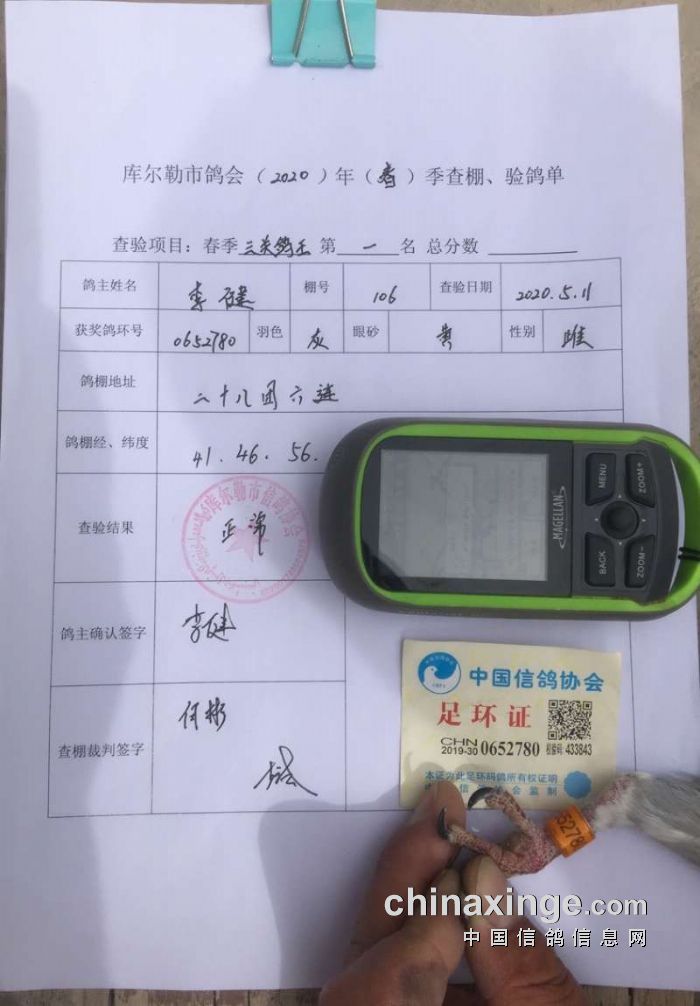 库尔勒市鸽会（2020）年（春）季查棚、验鸽单
查验项目：春季三关鸽王 第 一 名 总分数
鸽主姓名 李健 棚号 106 查验日期 2020.5.11
获奖鸽环号 0652780 羽色 灰 眼砂 黄 性别 雌
鸽棚地址 二十八团六连
鸽棚经、纬度 41.46.56.
查验结果 正常
库尔勒市信鸽协会
鸽主确认签字 李健
查棚裁判签字 何彬
MAGELLAN
MENU
ZOOM+
BACK
ZOOM−
中国信鸽协会
足环证
CHN
2019-30 0652780 校验码: 433843
本证为此足环码鸽所有权证明
会监制
chinaxinge.com
中国信鸽信息网